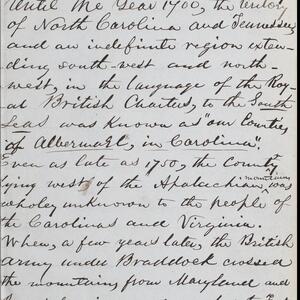 Until the Year 1700, the territory
of North Carolina and Tennessee
and an indefinite region exten-
ding south-west and north-
west, in the language of the Roy-
al British Charters, to the South
Seas was known as "our Counties
of Albermarl, in Carolina".
Even as late as 1750, the country
lying west of the Apalachian mountains, was
wholey unknown to the people of
the Carolinas and Virginia.
When, a few years later, the British
Army under Braddock crossed
the mountains from Maryland and